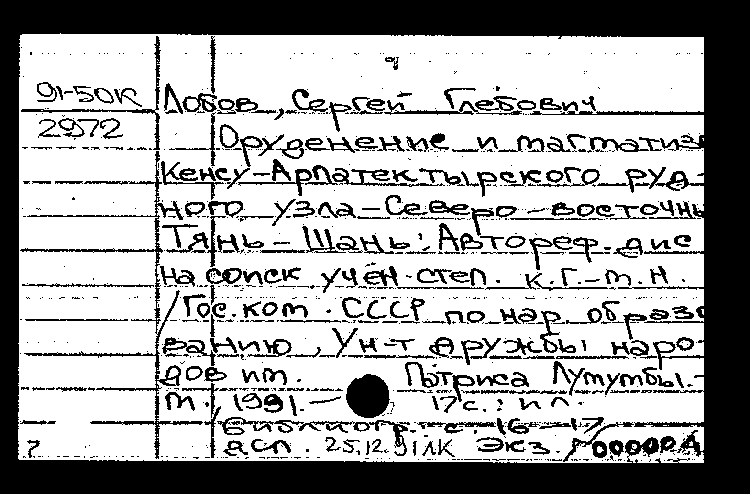 91-50К Лобов, Сергей Глебович
2972 Оруденение и магматизм
Кенсу-Арпатектырского руд-
ного узла - Северо-восточны
Тянь-Шань: Автореф. дис
на соиск. учён. степ. к.г.-м.н.
/Гос. ком. СССР по нар. образо
ванию, Ун-т дружбы наро-
дов им. Патриса Лумумбы.-
М., 1991.- 17 с.: ил.
Библиогр.: с. 16-17
7 ДСП. 25.12.91 ЛК Экз. 00000А